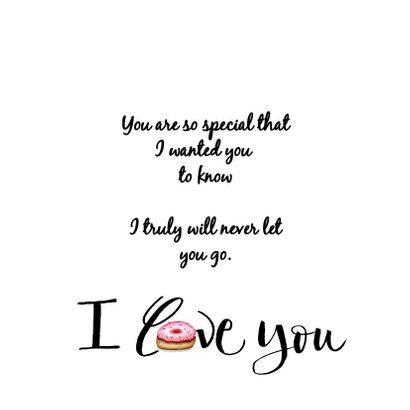 You are so special that
I wanted you
to know
I truly will never let
you go.
I love you